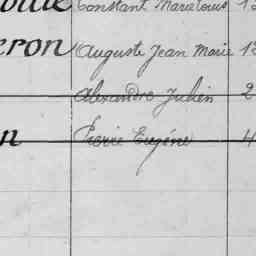 Constant Marie Louis 1
eron Auguste Jean Marie 1
Alexandre Julien 2
n Pierre Eugène 4